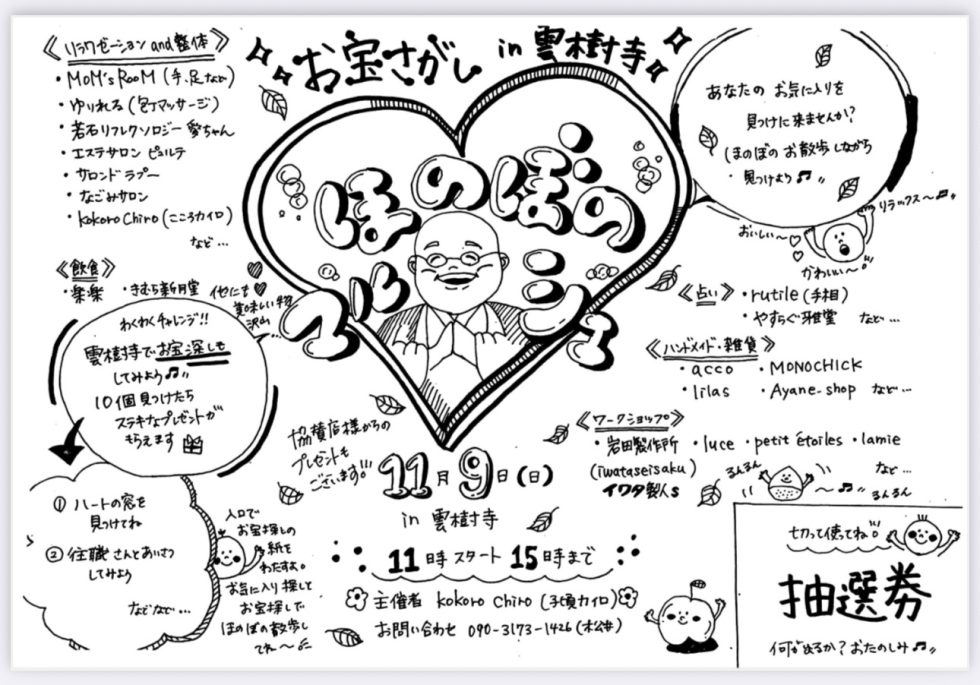 お宝さがし in 雲樹寺
ほのぼの
マルシェ
《リラクゼーション and 整体》
・MOM's RooM (手、足など)
・ゆりれる (包丁マッサージ)
・若石リフレクソロジー 愛ちゃん
・エステサロン ピュルテ
・サロンド ラプー
・なごみサロン
・kokoro chiro (こころカイロ)
など…
《飲食》
・楽楽 ・きむら新月堂
他にも
美味しい物
沢山…
わくわくチャレンジ!!
雲樹寺でお宝探しも
してみよう♫〃
10個見つけたら
ステキなプレゼントが
もらえます
① ハートの窓を
見つけてね
② 住職さんとあいさつ
してみよう
などなど…
入口で
お宝探しの
紙を
わたすよ。
お気に入り探しと
お宝探しで
ほのぼの散歩し
てね〜♫
協賛店様からの
プレゼントも
ございます!!!
11月9日(日)
in 雲樹寺
11時スタート 15時まで
主催者 kokoro chiro (子頃カイロ)
お問い合わせ 090-3173-1426 (松井)
あなたの お気に入りを
見つけに来ませんか?
ほのぼの お散歩しながら
見つけよう♫〃
リラックス〜♫〃
おいしい〜♡
かわいい〜!!
《占い》
・rutile (手相)
・やすらぐ雅堂 など…
《ハンドメイド・雑貨》
・acco ・MONOCHICK
・lilas ・Ayane-shop など…
《ワークショップ》
・岩田製作所 ・luce ・petit étoiles ・lamie
(iwataseisaku)
イワタ製人s
など…
るんるん
〜♫〃
るんるん
切って使ってね!!
抽選券
何が出るか?おたのしみ♫〃